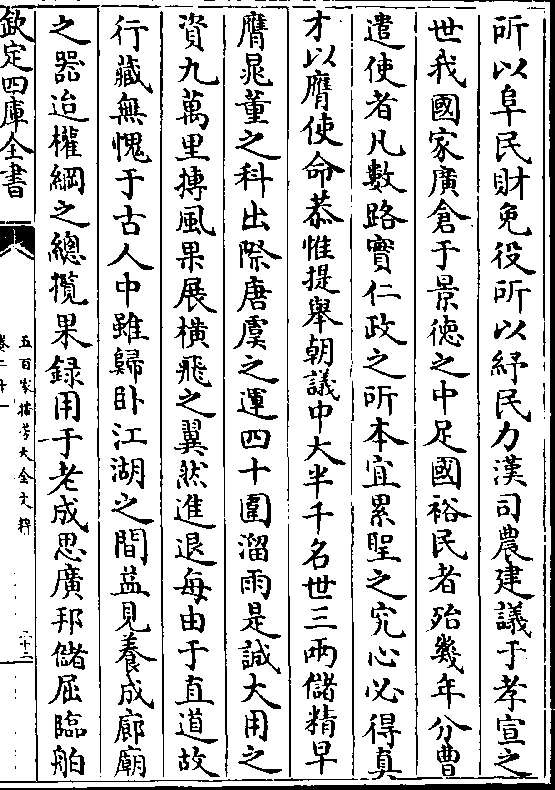 所以阜民財免役所以紓民力漢司農建議于孝宣之
世我國家廣倉于景德之中足國裕民者殆幾年分曹
遣使者凡數路實仁政之所本宜累聖之究心必得真
才以膺使命恭惟提舉朝議中大半千名世三兩儲精早
膺晁董之科出際唐虞之運四十圍溜雨是誠大用之
資九萬里摶風果展橫飛之翼然進退每由于直道故
行藏無愧于古人中雖歸卧江湖之間益見養成廊廟
之器迨權綱之總攬果録用于老成思廣邦儲屈臨舶
欽定四庫全書
五百家播芳大全文粹
卷二十一